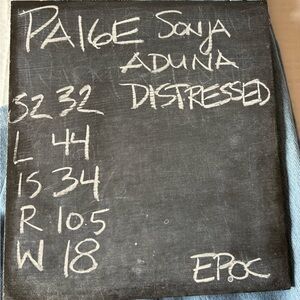 PAIGE Sonja
ADUNA
SZ 32 DISTRESSED
L 44
IS 34
R 10.5
W 18
EPOC